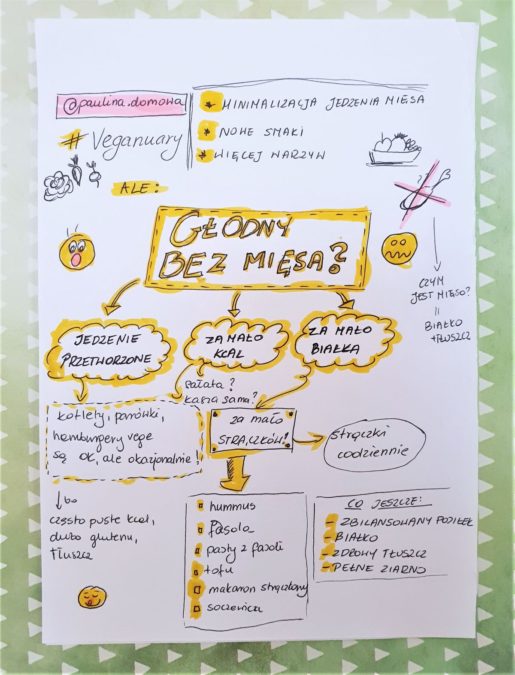 @paulina.domowa
# Veganuary
* MINIMALIZACJA JEDZENIA MIĘSA
* NOWE SMAKI
* WIĘCEJ WARZYW
ALE:
GŁODNY
BEZ MIĘSA?
CZYM
JEST MIĘSO?
=
BIAŁKO
+TŁUSZCZ
JEDZENIE
PRZETWORZONE
ZA MAŁO
KCAL
ZA MAŁO
BIAŁKA
sałata?
kasza sama?
kotlety, parówki,
hamburgery vege
są OK, ale okazjonalnie!
za mało
STRĄCZKÓW!
strączki
codziennie
↓ bo
często puste kcal,
dużo glutenu,
tłuszcz
hummus
fasola
pasty z fasoli
tofu
makaron strączkowy
soczewica
CO JESZCZE:
- ZBILANSOWANY POSIŁEK
- BIAŁKO
- ZDROWY TŁUSZCZ
- PEŁNE ZIARNO